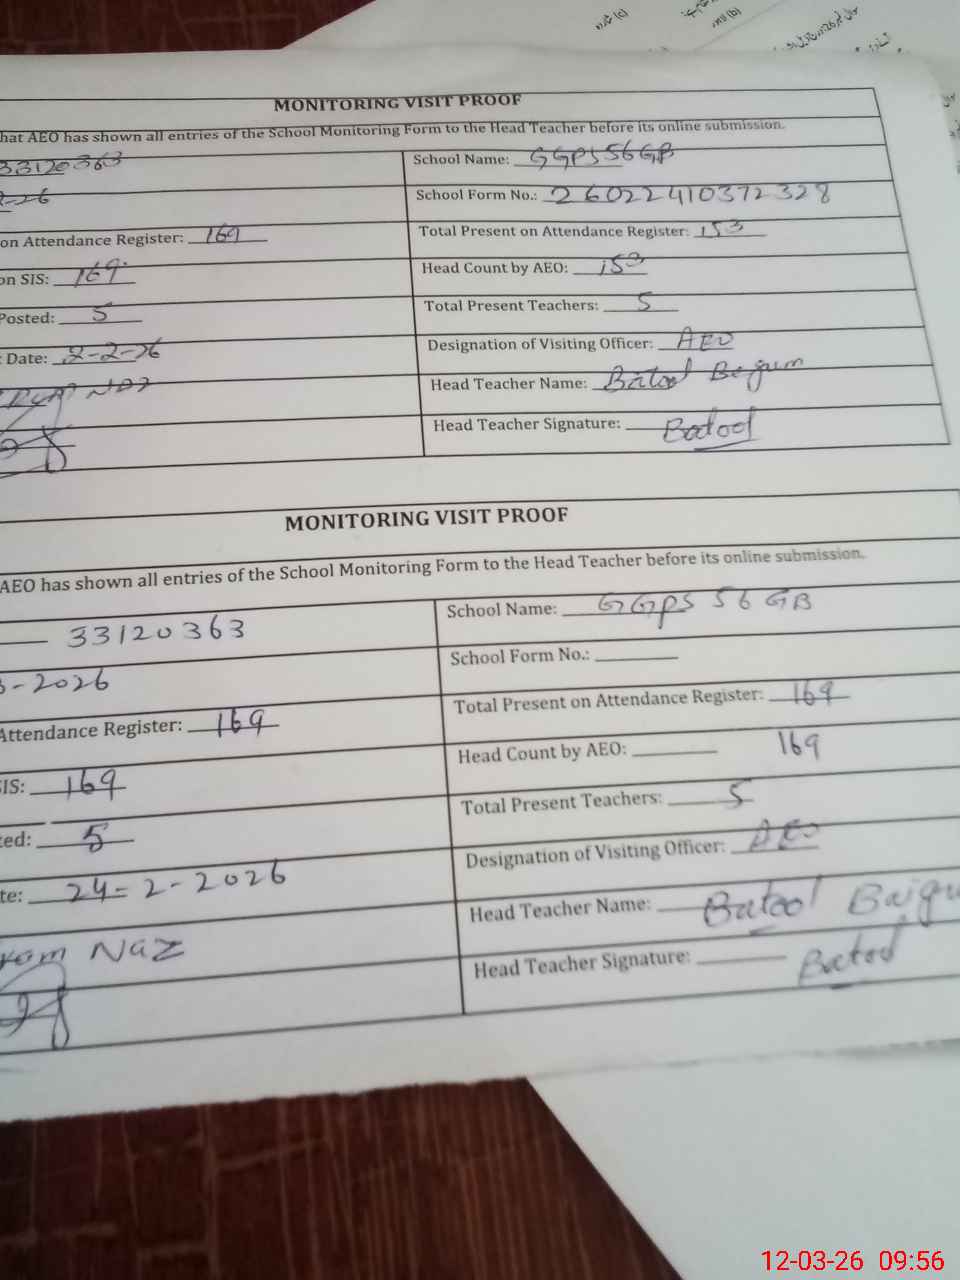 (c)
(b)
MONITORING VISIT PROOF
hat AEO has shown all entries of the School Monitoring Form to the Head Teacher before its online submission.
33120363
School Name: GGPS 56 GB
-26
School Form No.: 26022410372328
on Attendance Register: 169
Total Present on Attendance Register: 153
on SIS: 169
Head Count by AEO: 153
Posted: 5
Total Present Teachers: 5
Date: 2-2-26
Designation of Visiting Officer: AEO
Head Teacher Name: Batool Begum
Head Teacher Signature: Batool
MONITORING VISIT PROOF
AEO has shown all entries of the School Monitoring Form to the Head Teacher before its online submission.
33120363
School Name: GGPS 56 GB
School Form No.:
3-2026
Attendance Register: 169
Total Present on Attendance Register: 169
SIS: 169
Head Count by AEO: 169
ted: 5
Total Present Teachers: 5
te: 24-2-2026
Designation of Visiting Officer: AEO
Naz
Head Teacher Name: Batool Baigu
Head Teacher Signature: Batool
12-03-26 09:56